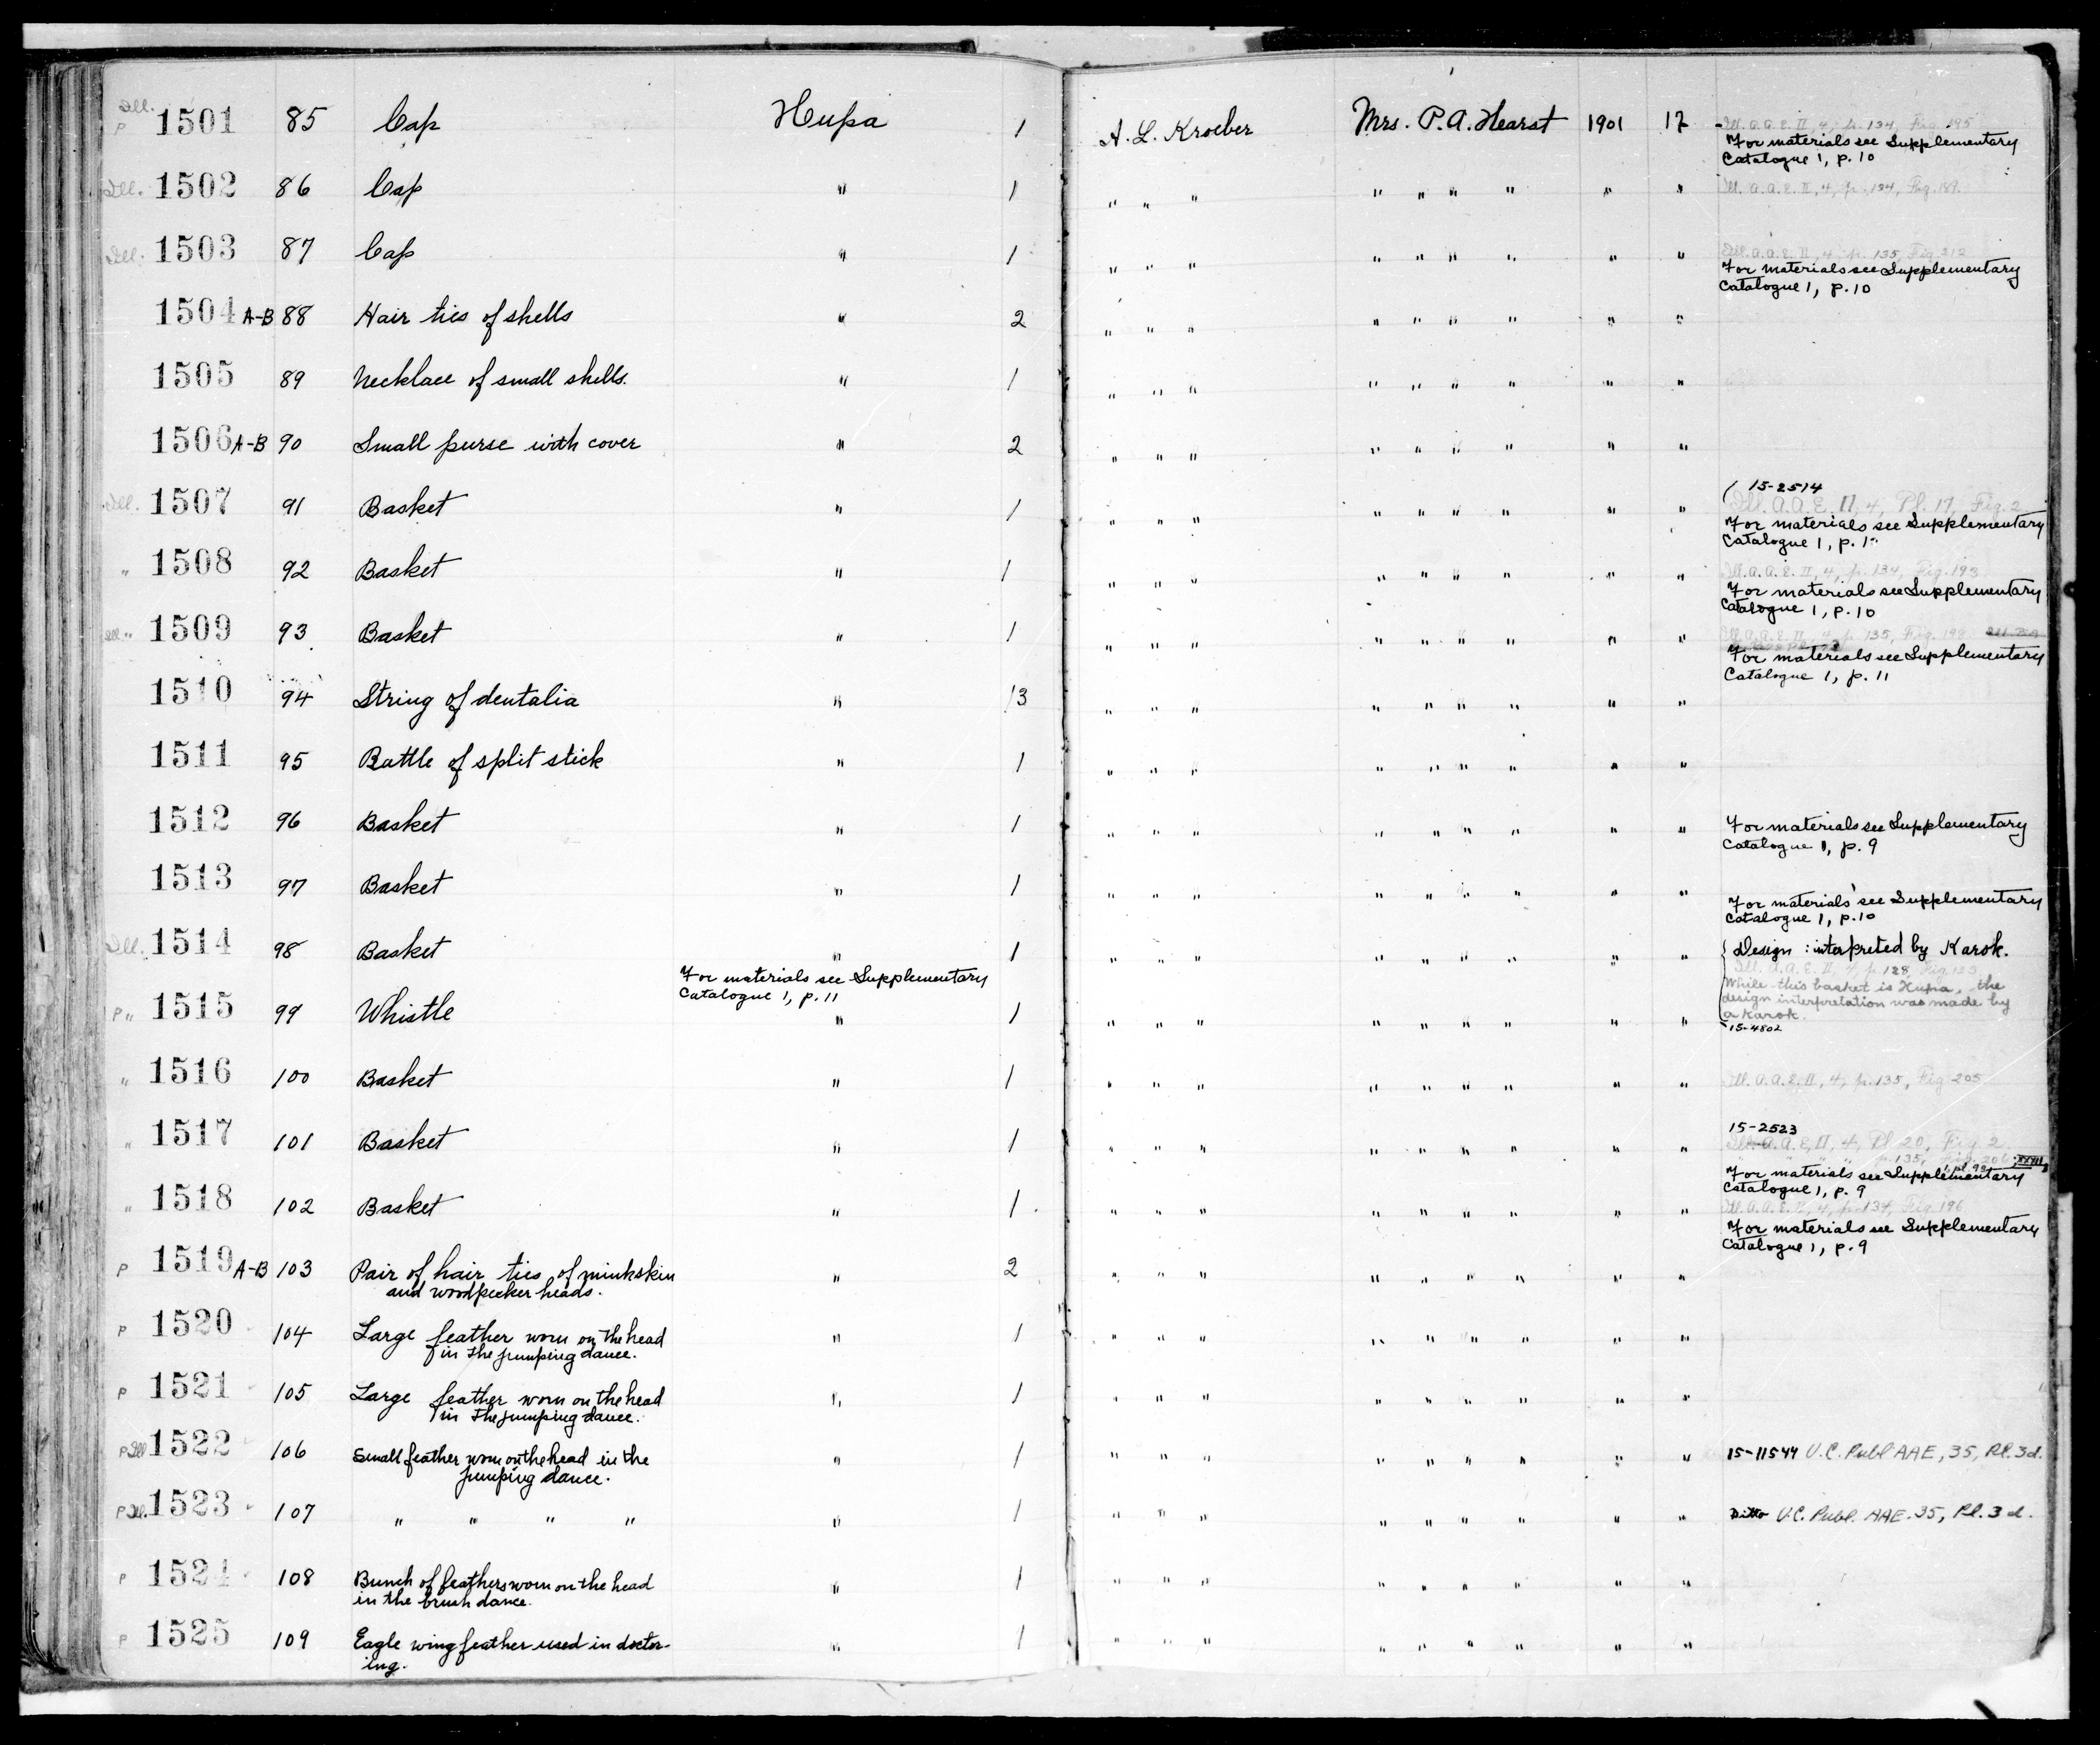 Ill. P 1501 85 Cap Hupa 1 A. L. Kroeber Mrs. P. A. Hearst 1901 17 Ill. A.A.E. II, 4, p. 134, Fig. 195
For materials see Supplementary
Catalogue 1, p. 10
Ill. 1502 86 Cap " 1 " " " " " " " " " Ill. A.A.E. II, 4, p. 134, Fig. 189.
Ill. 1503 87 Cap " 1 " " " " " " " " " Ill. A.A.E. II, 4, p. 135, Fig. 212
For materials see Supplementary
Catalogue 1, p. 10
1504 A-B 88 Hair ties of shells " 2 " " " " " " " " "
1505 89 Necklace of small shells. " 1 " " " " " " " " "
1506 A-B 90 Small purse with cover " 2 " " " " " " " " "
15-2514
Ill. 1507 91 Basket " 1 " " " " " " " " " Ill. A.A.E. II, 4, Pl. 17, Fig. 2
For materials see Supplementary
Catalogue 1, p.
" 1508 92 Basket " 1 " " " " " " " " " Ill. A.A.E. II, 4, p. 134, Fig. 193
For materials see Supplementary
Catalogue 1, p. 10
Ill. " 1509 93 Basket " 1 " " " " " " " " " Ill. A.A.E. II, 4, p. 135, Fig.
For materials see Supplementary
Catalogue 1, p. 11
1510 94 String of dentalia " 13 " " " " " " " " "
1511 95 Rattle of split stick " 1 " " " " " " " " "
1512 96 Basket " 1 " " " " " " " " " For materials see Supplementary
Catalogue 1, p. 9
1513 97 Basket " 1 " " " " " " " " " For materials see Supplementary
Catalogue 1, p. 10
Ill. 1514 98 Basket " 1 " " " " " " " " " Design : interpreted by Karok.
For materials see Supplementary
Catalogue 1, p. 11
Ill. A.A.E. II, 4, p. 128, Fig.
While this basket is Hupa, the
design interpretation was made by
a Karok.
15-4802
P " 1515 99 Whistle " 1 " " " " " " " " "
" 1516 100 Basket " 1 " " " " " " " " " Ill. A.A.E. II, 4, p. 135, Fig 205
15-2523
" 1517 101 Basket " 1 " " " " " " " " " Ill. A.A.E. II, 4, Pl 20, Fig 2
p. 135, Fig. 206
For materials see Supplementary
Catalogue 1, p. 9
" 1518 102 Basket " 1 " " " " " " " " " Ill. A.A.E. II, 4, p. 134, Fig. 196
For materials see Supplementary
Catalogue 1, p. 9
P 1519 A-B 103 Pair of hair ties of minkskin " 2 " " " " " " " " "
and woodpecker heads.
P 1520 104 Large feather worn on the head " 1 " " " " " " " " "
in the jumping dance.
P 1521 105 Large feather worn on the head " 1 " " " " " " " " "
in the jumping dance.
P Ill 1522 106 Small feather worn on the head in the " 1 " " " " " " " " " 15-11544 U.C. Publ AAE, 35, Pl. 3d.
jumping dance.
P Ill. 1523 107 " " " " " 1 " " " " " " " " " Ditto U.C. Publ. AAE. 35, Pl. 3d.
P 1524 108 Bunch of feathers worn on the head " 1 " " " " " " " " "
in the brush dance.
P 1525 109 Eagle wing feather used in doctor- " 1 " " " " " " " " "
ing.